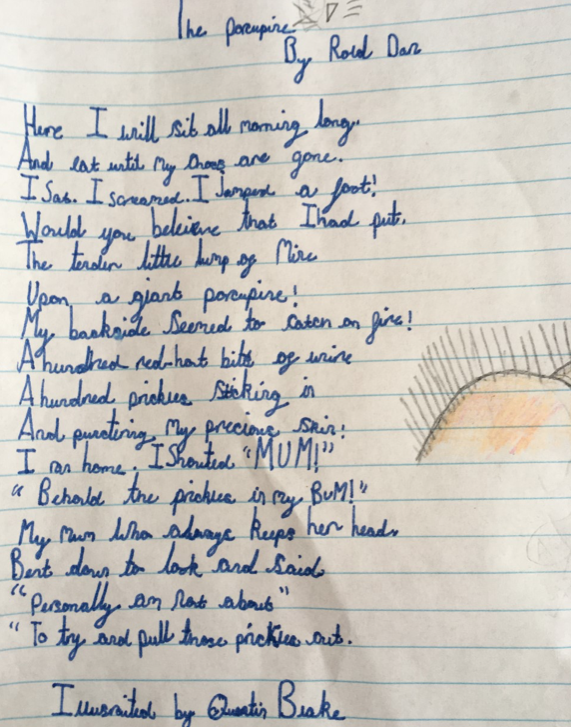 The porcupine
By Rold Dar
Here I will sit all morning long.
And eat until my chocs are gone.
I Sat. I screamed. I Jamped a foot!
Would you beleieve that I had put.
The tender little lump of Mire
Upon a giant porcupine!
My backside Seemed to catch on fire!
A hundred red-hot bits of wire
A hundred prickies Sticking in
And puncturing my precious skin!
I ran home. I Shouted "MUM!"
"Behold the prickies in my BUM!"
My mum who always keeps her head.
Bent down to look and said
"Personally am not about"
"To try and pull those prickies out.
Illusraited by Quentin Beake